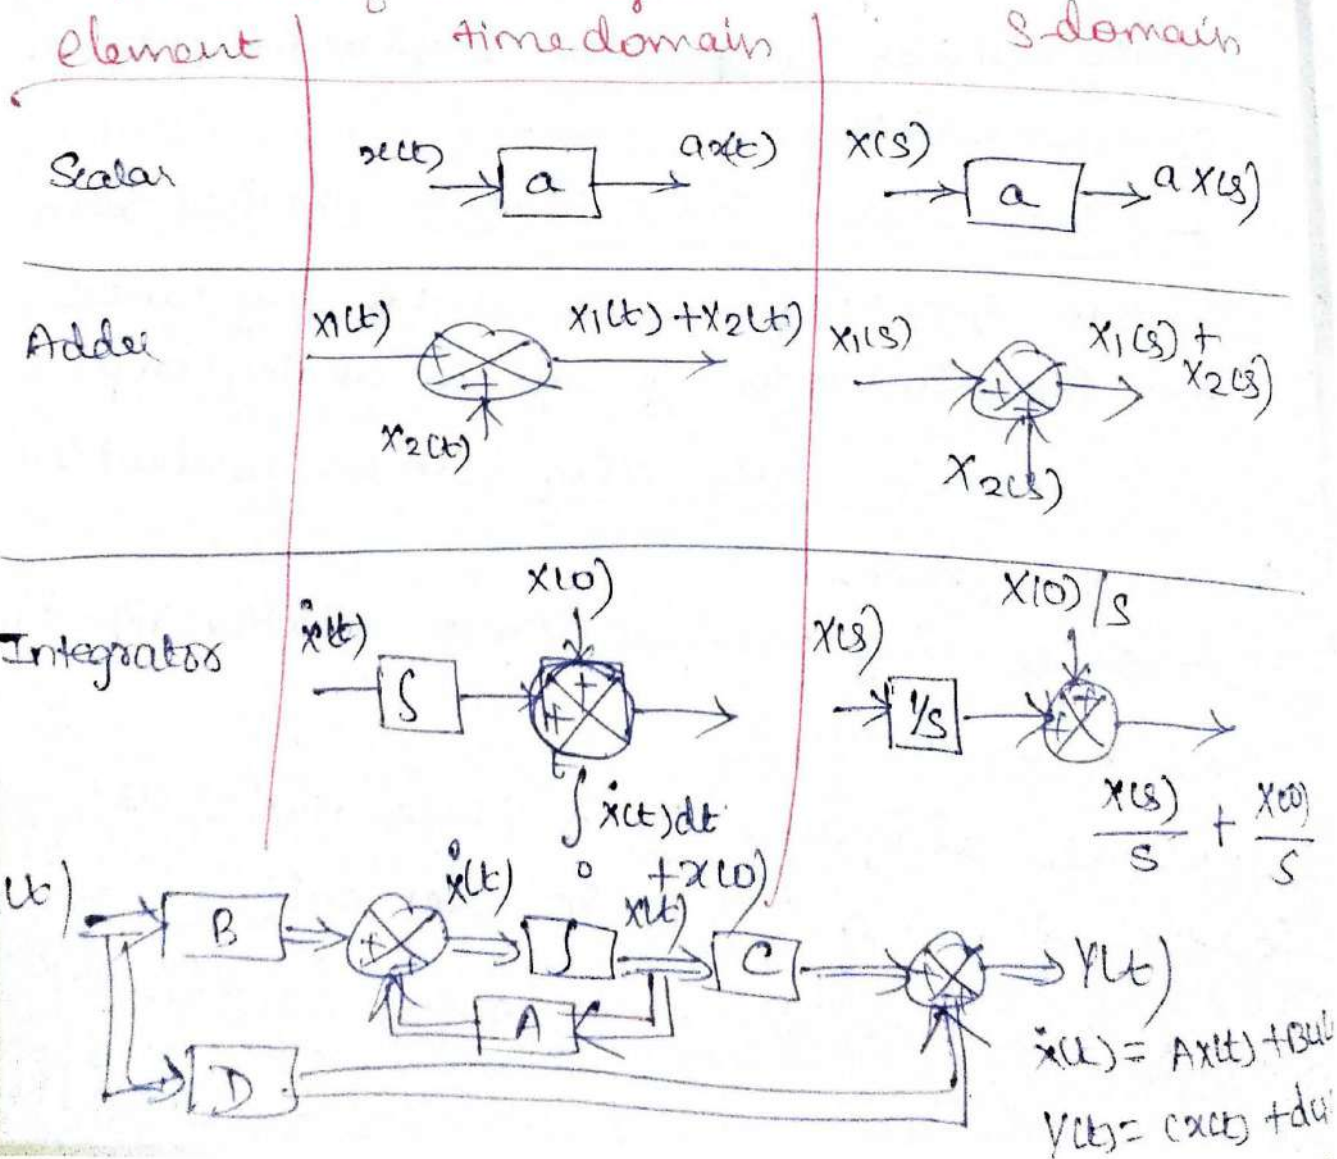 element time domain S-domain
Scalar x(t) a ax(t) X(s) a a X(s)
Adder x1(t) + + x1(t) + x2(t) x2(t) X1(s) + + X1(s) + X2(s) X2(s)
Integrator ẋ(t) ∫ X(0) + + t ∫ ẋ(t) dt 0 + x(0) X(s) 1/s X(0)/s + + X(s)/s + X(0)/s
(t) B + ẋ(t) ∫ x(t) C + Y(t)
A
D
ẋ(t) = Ax(t) + Bu(
Y(t) = Cx(t) + du